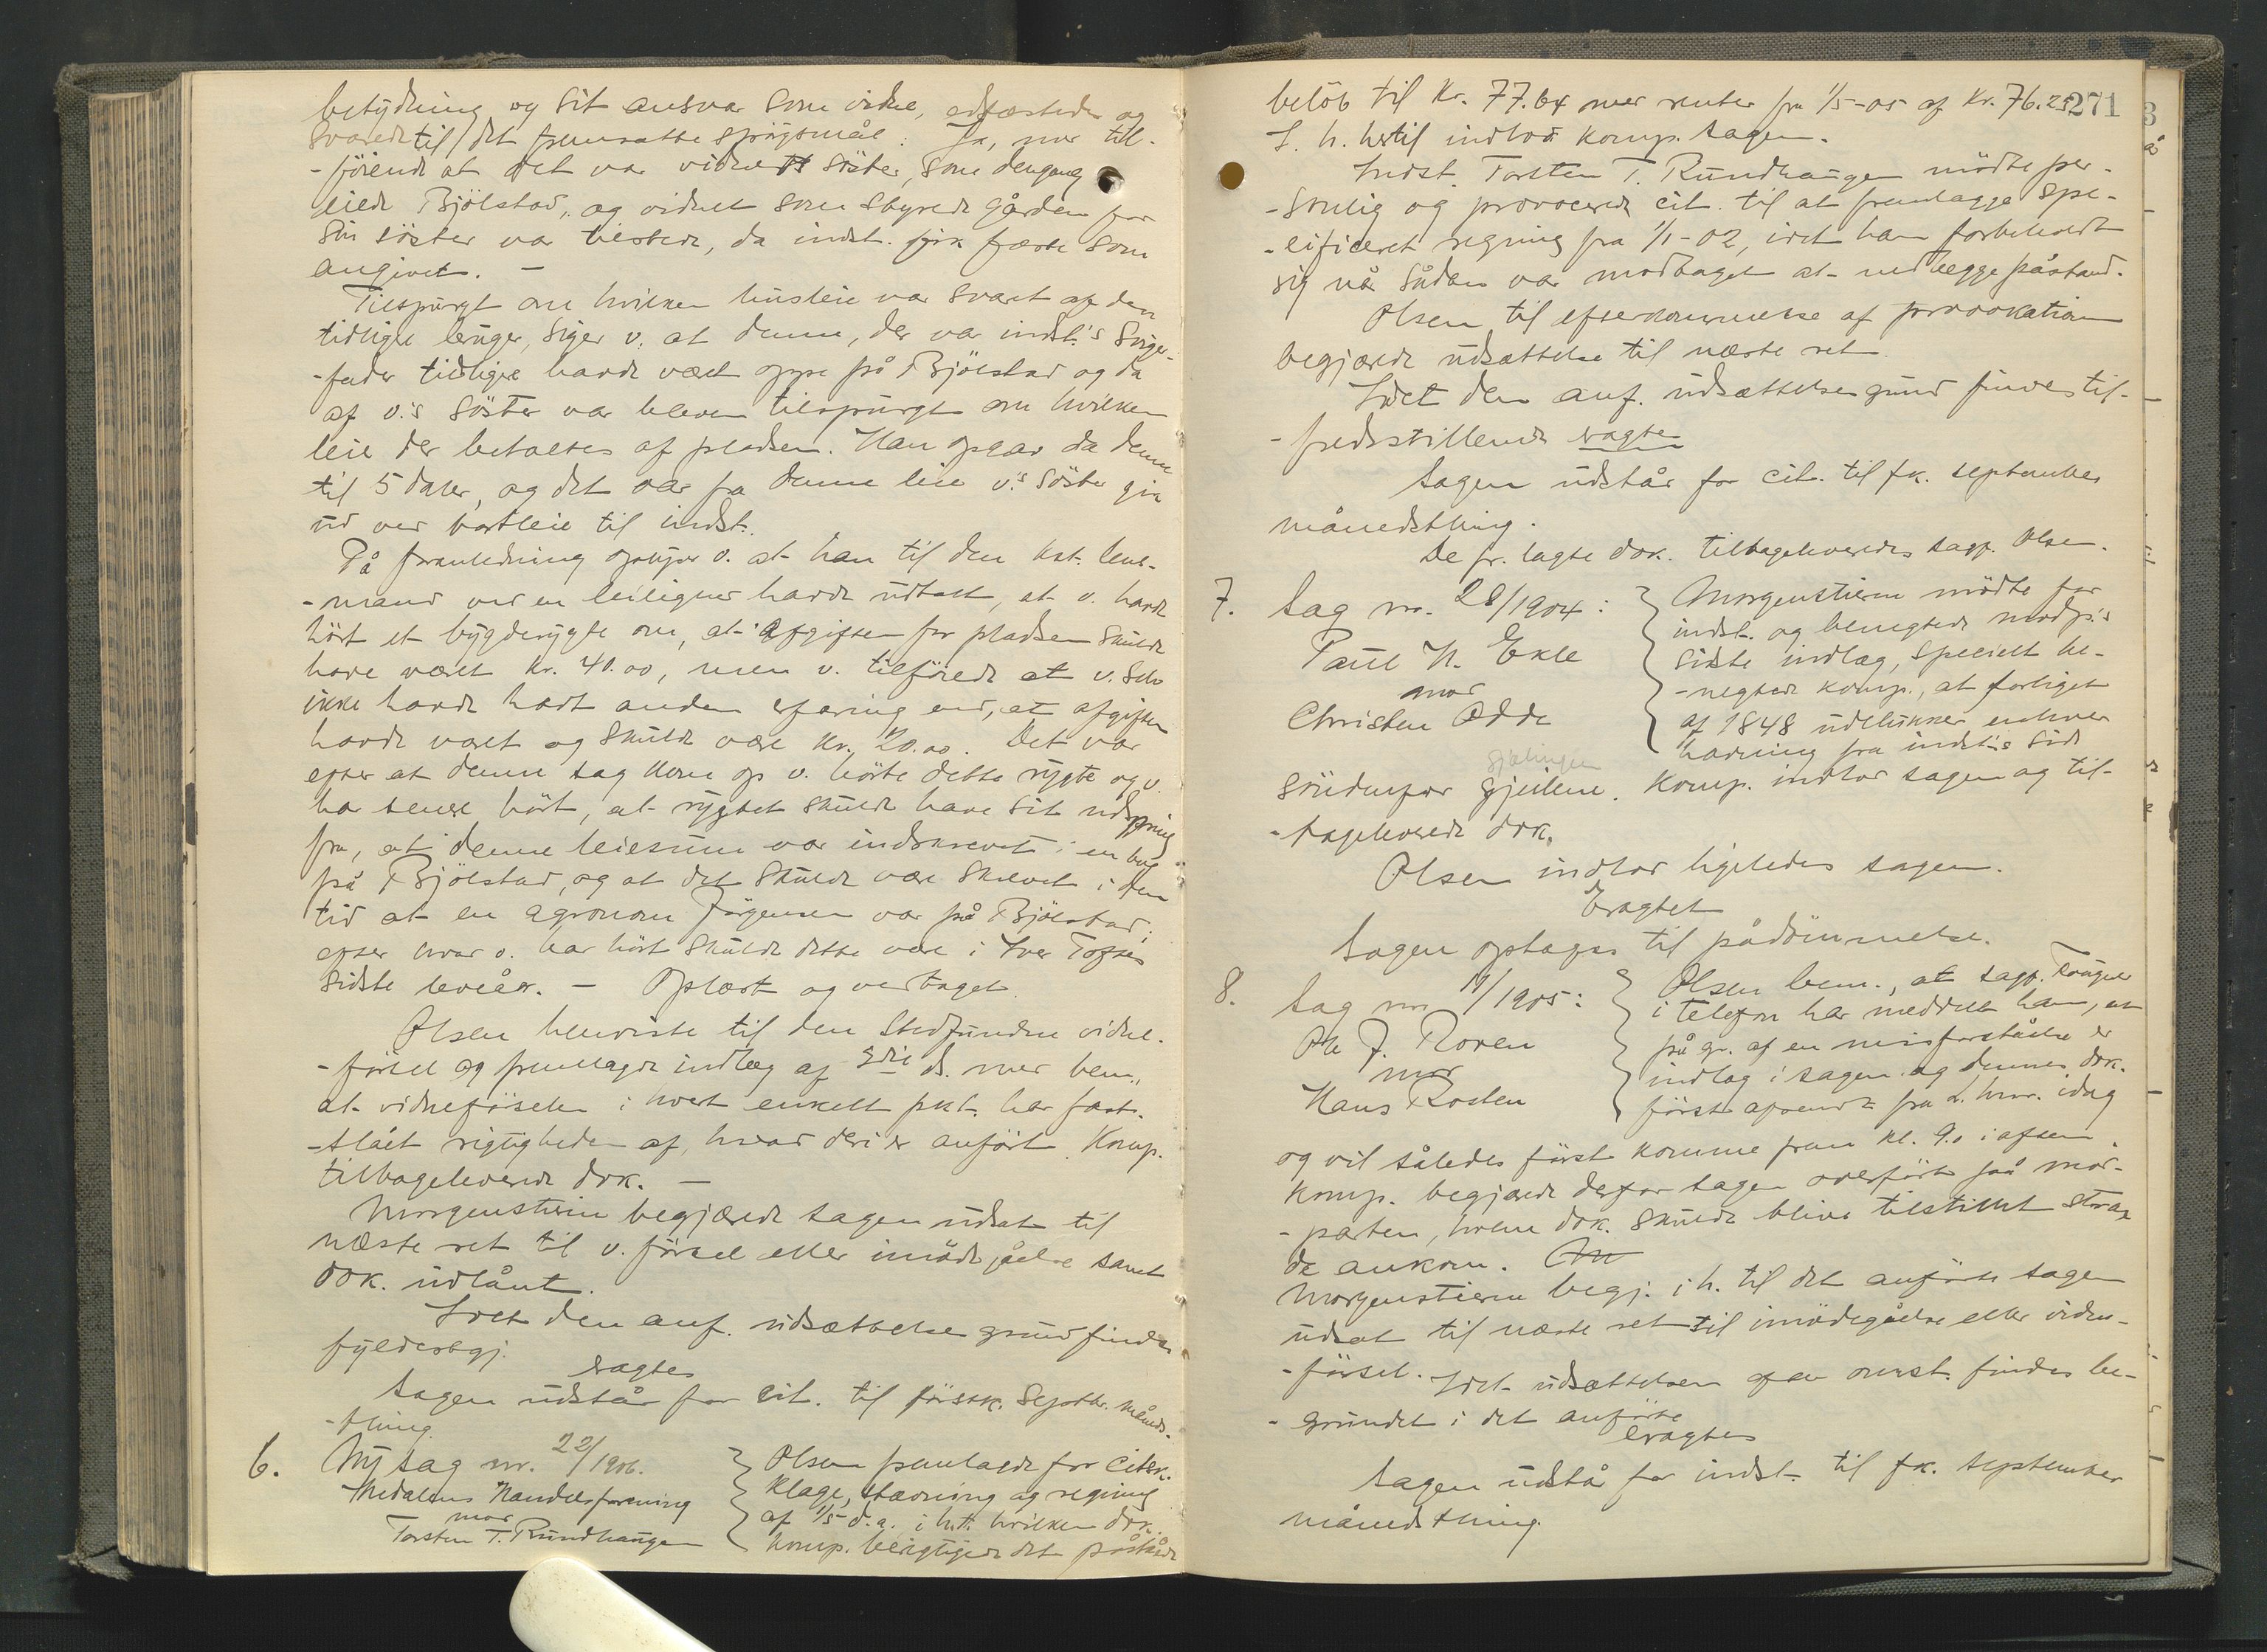 betydning og sit ansvar som vidne, edfæstedes og
svarede til det fremsatte spörgsmål: Ja, med til-
-föiende at det var vidnets söster, som dengang
eiede Bjölstad, og vidnet som styrede gården for
sin söster var tilstede, da indst. fik fæste som
angivet. —
Tilspurgt om hvilken husleie var svaret af den
tidligere bruger, siger v. at denne, der var indst.'s sviger-
-fader tidligere havde været oppe på Bjölstad og da
af v.'s söster var bleven tilspurgt om hvilken
leie der betaltes af pladsen. Han opgav da denne
til 5 daler, og det var fra denne leie v.'s söster gik
ud ved bortleie til indst.
På foranledning oplyser v. at han til den kst. lens-
-mand ved en leilighed havde udtalt, at v. havde
hört et bygderygte om, at afgiften for pladsen skulde
have været kr. 40.00, men v. tilföiede at v. selv
ikke havde havt anden erfaring end, at afgiften
havde været og skulde være kr. 20.00. Det var
efter at denne sag kom op v. hörte dette rygte og v.
har senere hört, at rygtet skulde have sit udspring
fra, at denne leiesum var indskrevet i en bog
på Bjölstad, og at det skulde være skrevet i den
tid at en agronom Jörgensen var på Bjölstad;
efter hvad v. har hört skulde dette være i Iver Tofte's
sidste leveår. — Oplæst og vedtaget.
Olsen henviste til den stedfundne vidne-
-försel og fremlagde indlæg af ds. med bem.,
at vidneförselen i hvert enkelt pkt. har fast-
-slået rigtigheden af, hvad deri er anfört. Komp.
tilbageleverede dok. —
Morgenstierne begjærede sagen udsat til
næste ret til v. försel eller imödegåelse samt
dok. udlånt.
Idet den anf. udsættelsesgrund findes
fyldestgj.
eragtes
Sagen udstår for cit. til förstk. septbr. måneds-
-thing.
6. Ny sag nr. 22/1906.
Hedalens Handelsforening
mod
Torsten T. Rundhaugen
Olsen fremlagde for citsk.
klage, stævning og regning
af 1/5 d.a. i h.t. hvilken dok.
komp. berigtigede det påstævnte
271
belöb til kr. 77.64 med renter fra 1/5-05 af kr. 76.25
I. h. hertil indlod komp. sagen.
Indst. Torsten T. Rundhaugen mödte per-
-sonlig og provocerede cit. til at fremlægge spe-
-cificeret regning fra 1/1-02, idet han forbeholdt
sig når sådan var modtaget at nedlægge påstand.
Olsen til efterkommelse af provokationen
begjærede udsættelse til næste ret.
Idet den anf. udsættelsesgrund findes til-
-fredsstillende eragtes
Sagen udstår for cit. til fk. september
månedsthing.
De fr. lagte dok. tilbageleveredes sagf. Olsen.
7. Sag nr. 28/1904:
Paul H. Ekle
mod
Christen Odde
Morgenstierne mödte for
indst. og benegtede modp.'s
sidste indlæg, specielt be-
-negtede komp., at forliget
af 1848 udelukker enhver
havning fra indst.'s side
gjælingen
söndenfor gjeilene. Komp. indlod sagen og til-
-bageleverede dok.
Olsen indlod ligeledes sagen.
Eragtet
Sagen optages til pådömmelse.
8. Sag nr. 11/1905:
Ole J. Roren
mod
Hans Rosten
Olsen bem., at sagf.
i telefon har meddelt ham, at
på gr. af en misforståelse er
indlæg i sagen og dennes dok.
först afsendt fra L.hmr. idag
og vil således först komme frem kl. 9.0 i aften.
Komp. begjærede derfor sagen overfört på mod-
-parten, hvem dok. skulde blive tilstillet strax
de ankom.
Morgenstierne begj. i h. til det anförte sagen
udsat til næste ret til imödegåelse eller vidne-
-försel. Idet udsættelsen af den omst. findes be-
-grundet i det anförte
eragtes
Sagen udstår for indst. til fk. september
månedsthing.